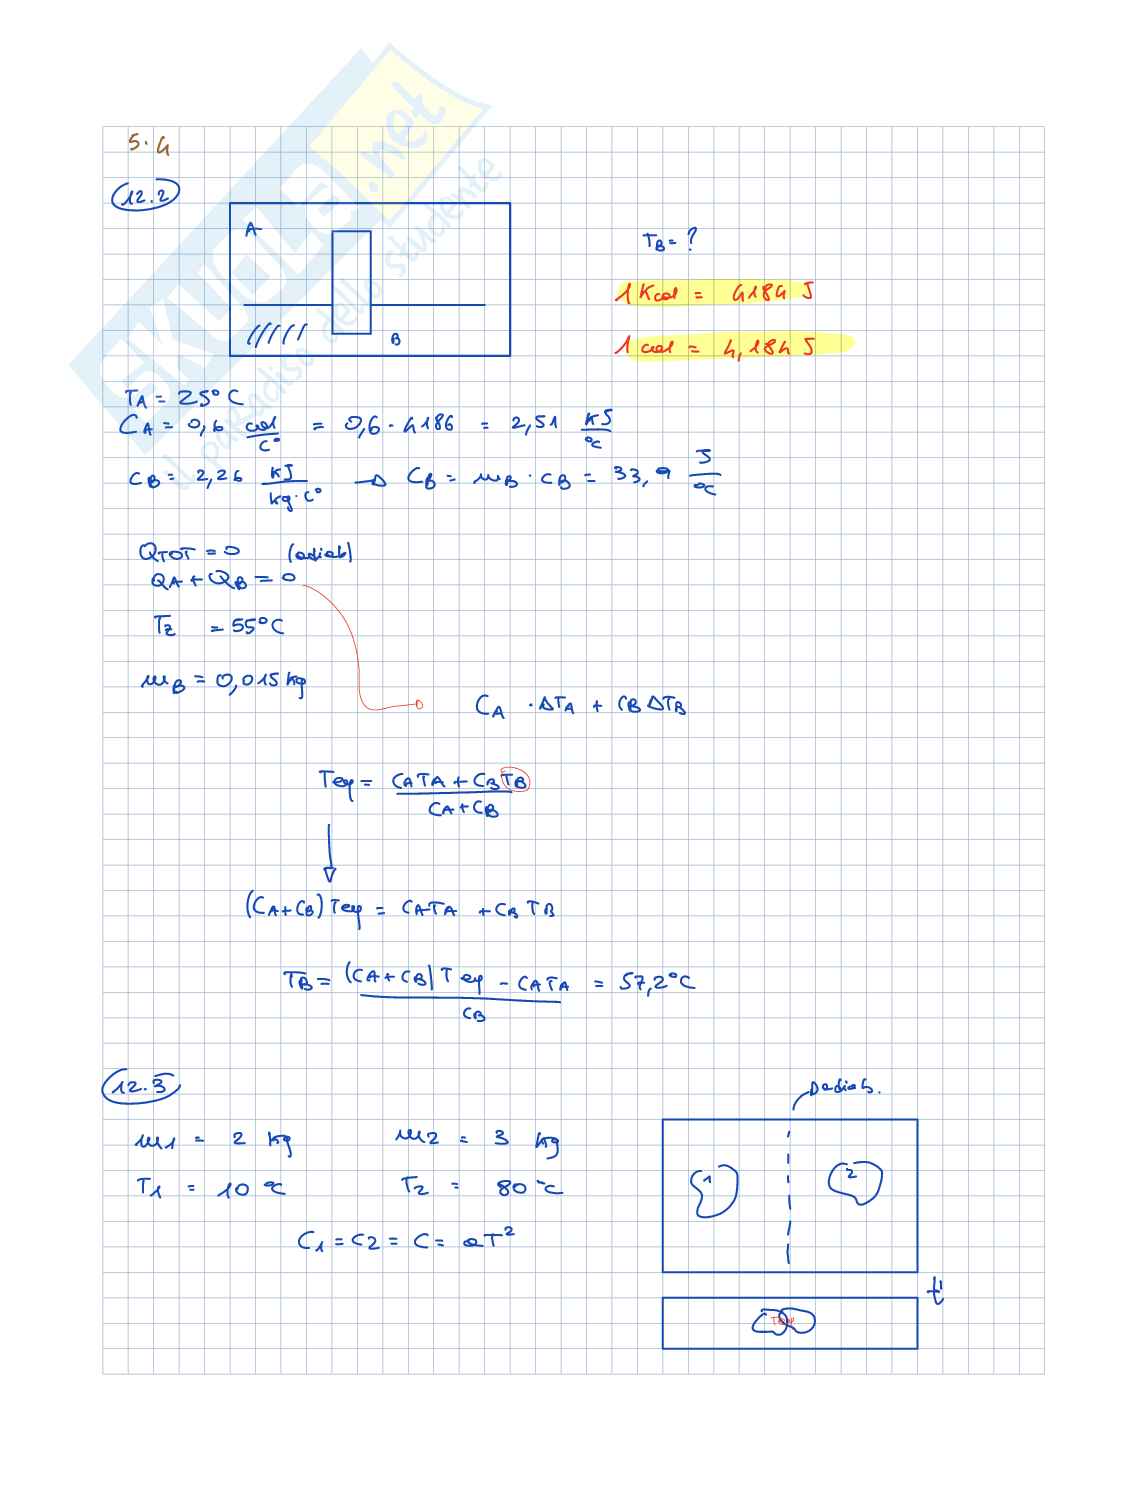 SKUOLA.net
il paradiso dello studente
5.4
12.2
A
B
TB = ?
1 Kcal = 4184 J
1 cal = 4,184 J
TA = 25°C
CA = 0,6 cal/C° = 0,6 · 4186 = 2,51 KJ/°C
CB = 2,26 KJ/kg·C° → CB = mB · cB = 33,9 J/°C
QTOT = 0 (adiab)
QA + QB = 0
T2 = 55°C
mB = 0,015 kg
CA · ΔTA + CB ΔTB
Teq = (CATA + CBTB)/(CA + CB)
(CA + CB) Teq = CATA + CB TB
TB = ((CA + CB) Teq - CATA)/CB = 57,2°C
12.3
m1 = 2 kg m2 = 3 kg
T1 = 10 °C T2 = 80 °C
C1 = C2 = C = aT²
1
2
t'